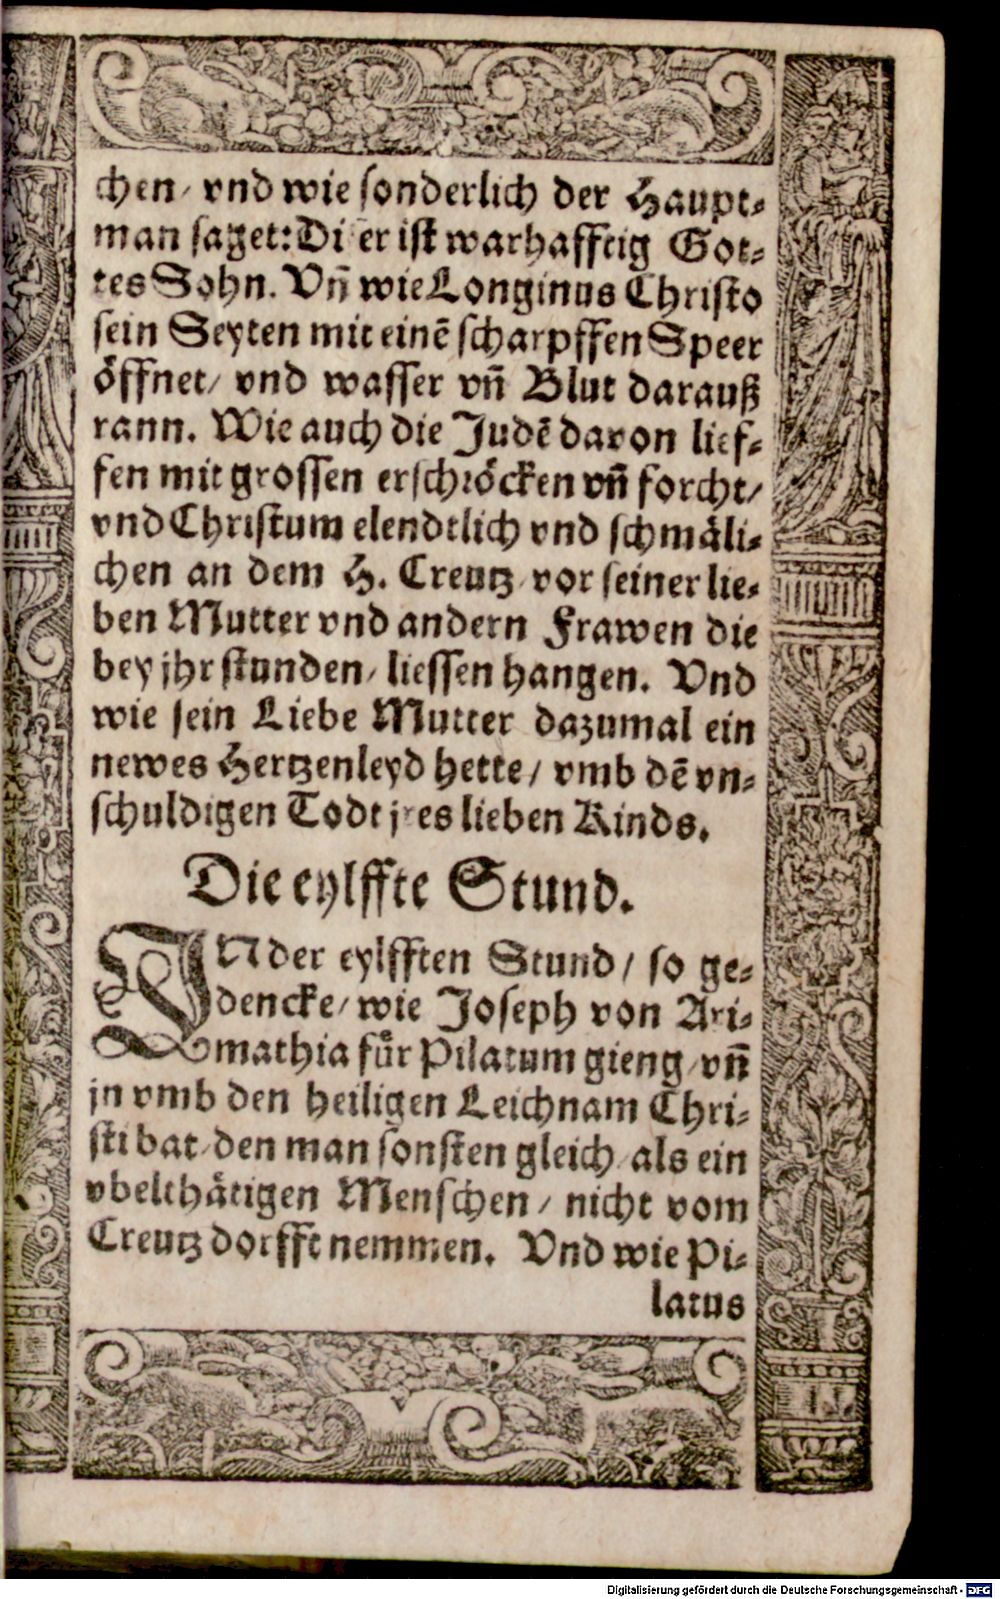 chen/ vnd wie sonderlich der Haupt-
man saget: Diser ist warhafftig Got-
tes Sohn. Vñ wie Longinus Christo
sein Seyten mit einẽ scharpffen Speer
öffnet/ vnd wasser vñ Blut darauß
rann. Wie auch die Judẽ darvon lief-
fen mit grossen erschröcken vñ forcht/
vnd Christum elendtlich vnd schmäli-
chen an dem H. Creutz/ vor seiner lie-
ben Mutter vnd andern Frawen die
bey jhr stunden/ liessen hangen. Vnd
wie sein Liebe Mutter dazumal ein
newes Hertzenleyd hette/ vmb dẽ vn-
schuldigen Todt jres lieben Kinds.
Die eylffte Stund.
JN der eylfften Stund/ so ge-
dencke/ wie Joseph von Ari-
mathia für Pilatum gieng/ vñ
jn vmb den heiligen Leichnam Chri-
sti bat/ den man sonsten gleich/ als ein
vbelthätigen Menschen/ nicht vom
Creutz dorfft nemmen. Vnd wie Pi-
latus
Digitalisierung gefördert durch die Deutsche Forschungsgemeinschaft - DFG